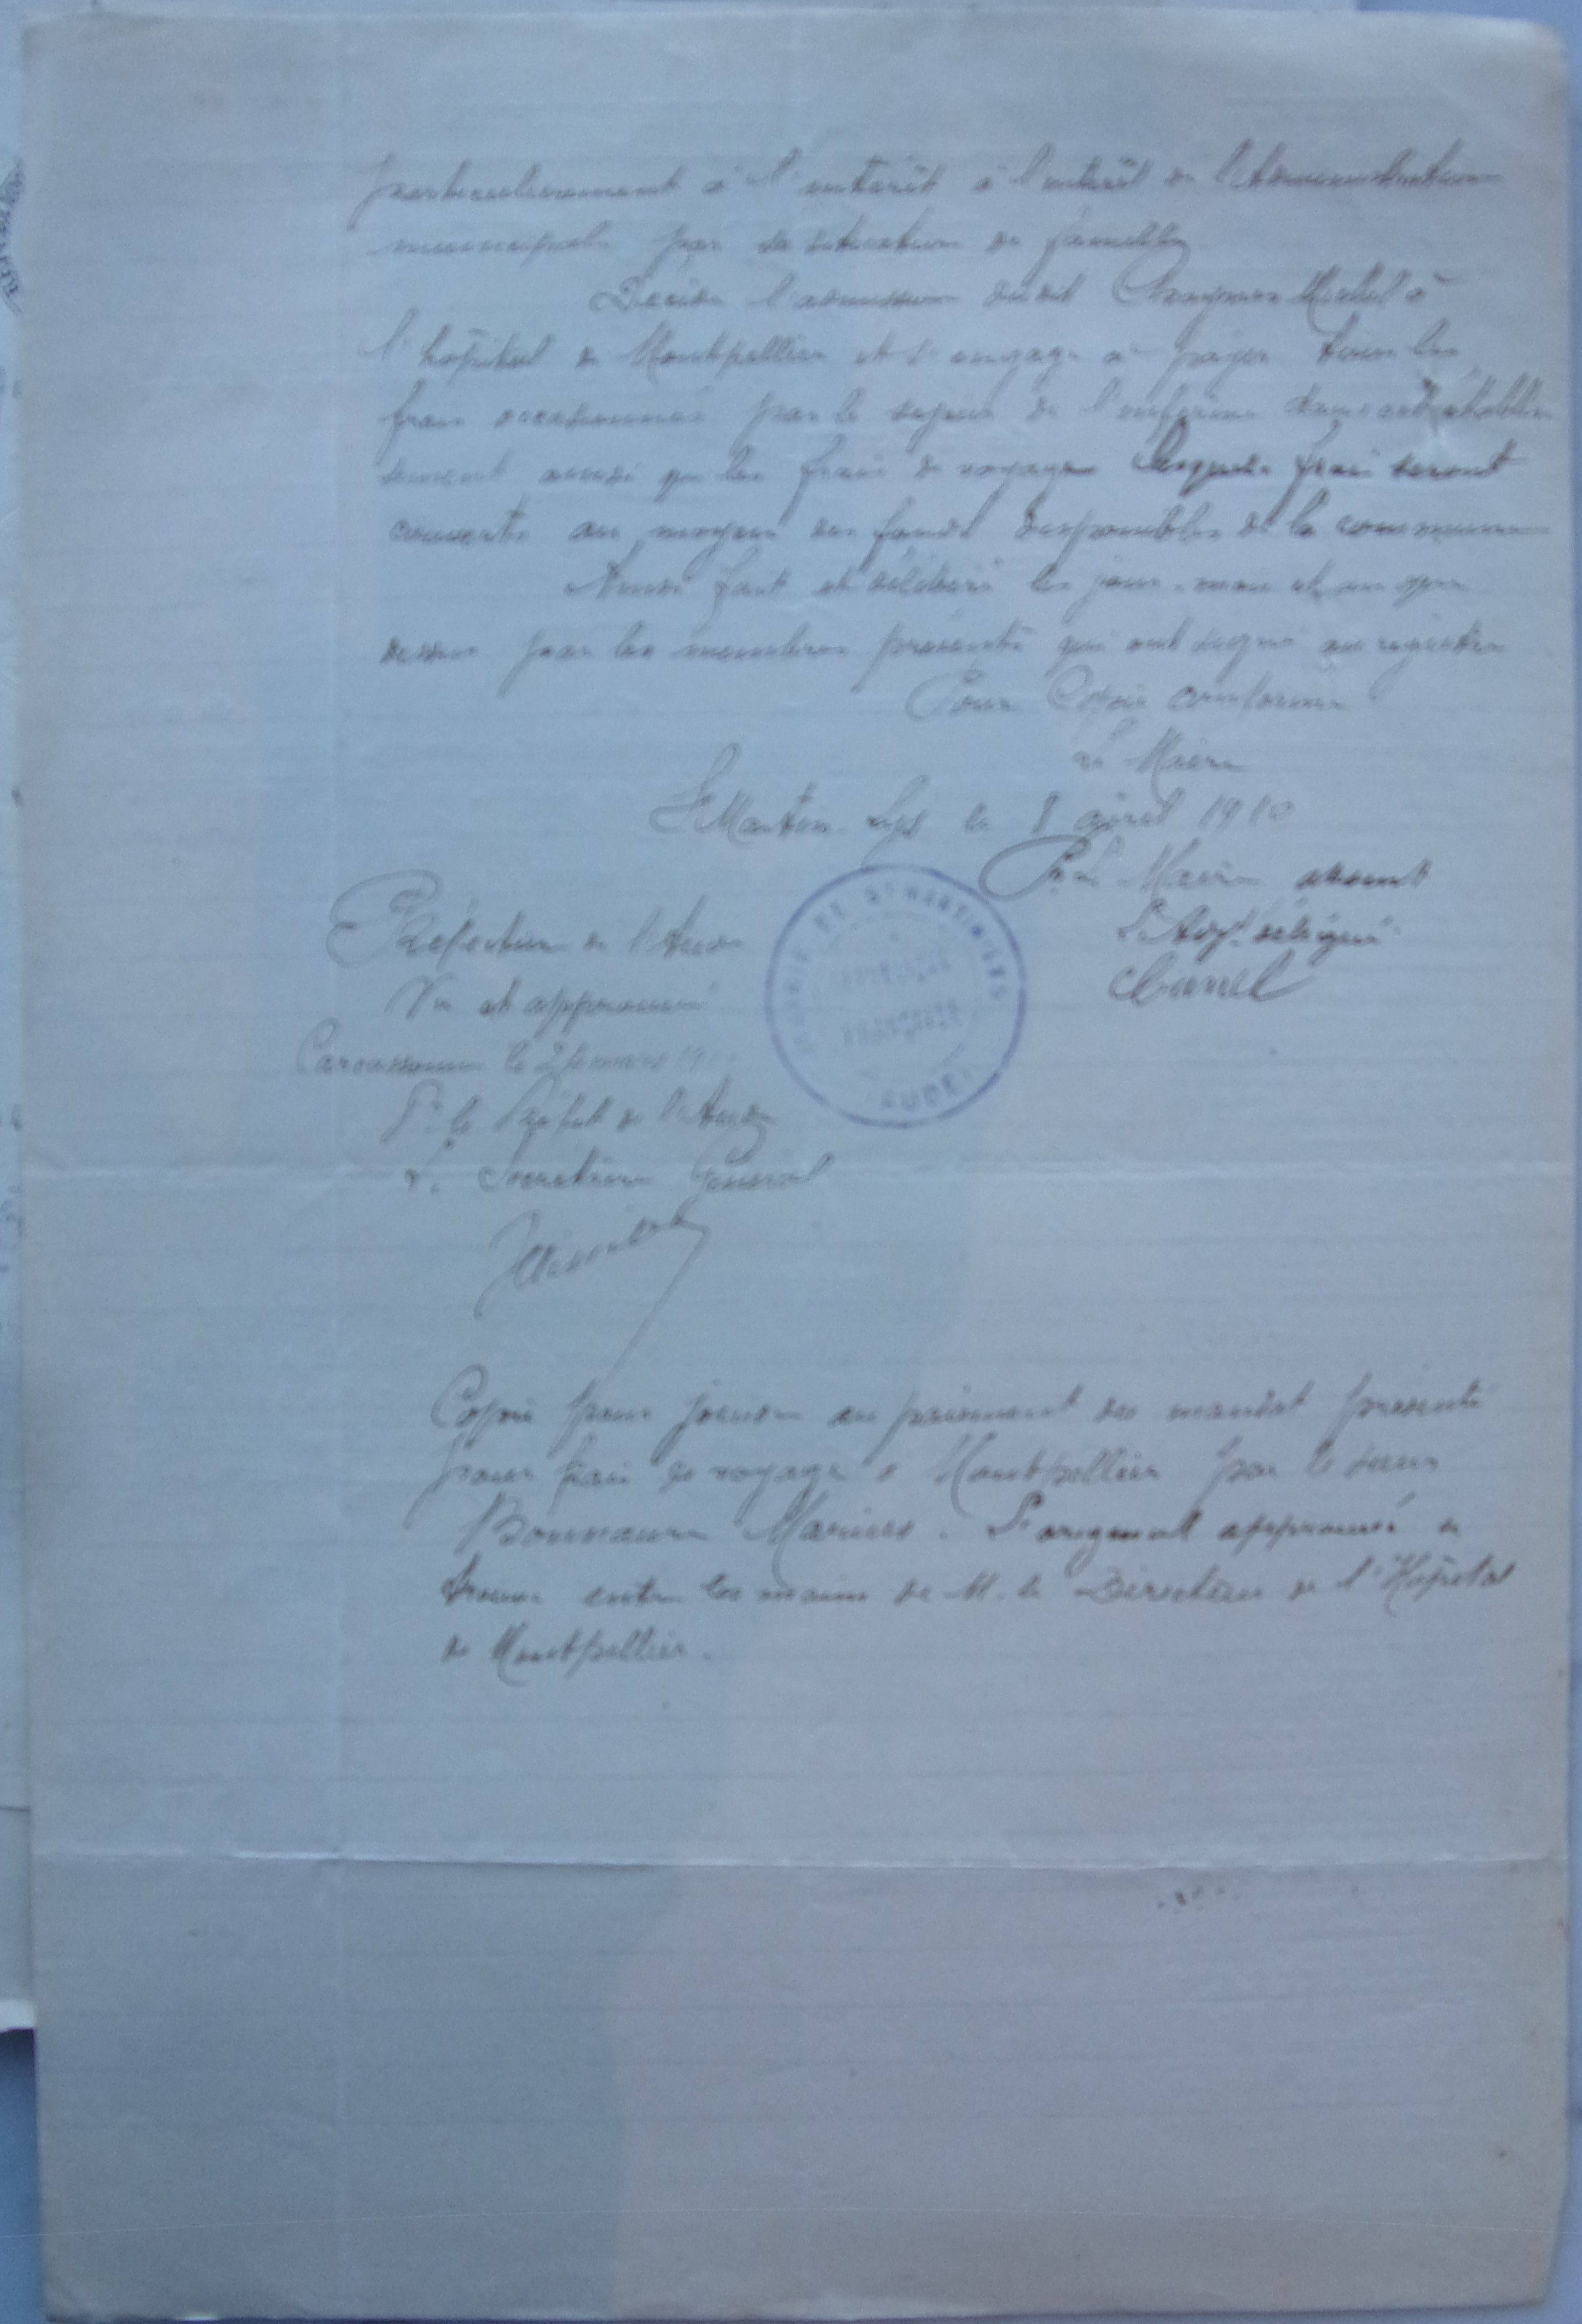 particulièrement à l'interêt à l'interêt de l'Administration
municipale par sa situation de famille
Décide l'admission dudit Michel à
l'hôpital de Montpellier et s'engage à payer tous les
frais occasionnés par le sejour de l'infirme dans cet établis
sement ainsi que les frais de voyage lesquels frais seront
couverts au moyen des fonds disponibles de la commune
Ainsi fait et délibéré les jour, mois et an que
dessus par les membres présents qui ont signé au registre
Pour Copie conforme
Le Maire
St Martin Lys le 8 avril 1910
Pr Le Maire absent
L'Adjt délégué
MAIRIE DE ST MARTIN LYS
REPUBLIQUE
FRANÇAISE
(AUDE)
Préfecture de l'Aude
Vu et approuvé
Carcassonne le mars 19
Pr le Préfet de l'Aude
Le Secrétaire Général
Copie pour joindre au paiement du mandat présenté
pour frais de voyage à Montpellier par le sieur
Bonnaure Marius. L'original approuvé se
trouve entre les mains de M. le Directeur de l'Hôpital
de Montpellier.